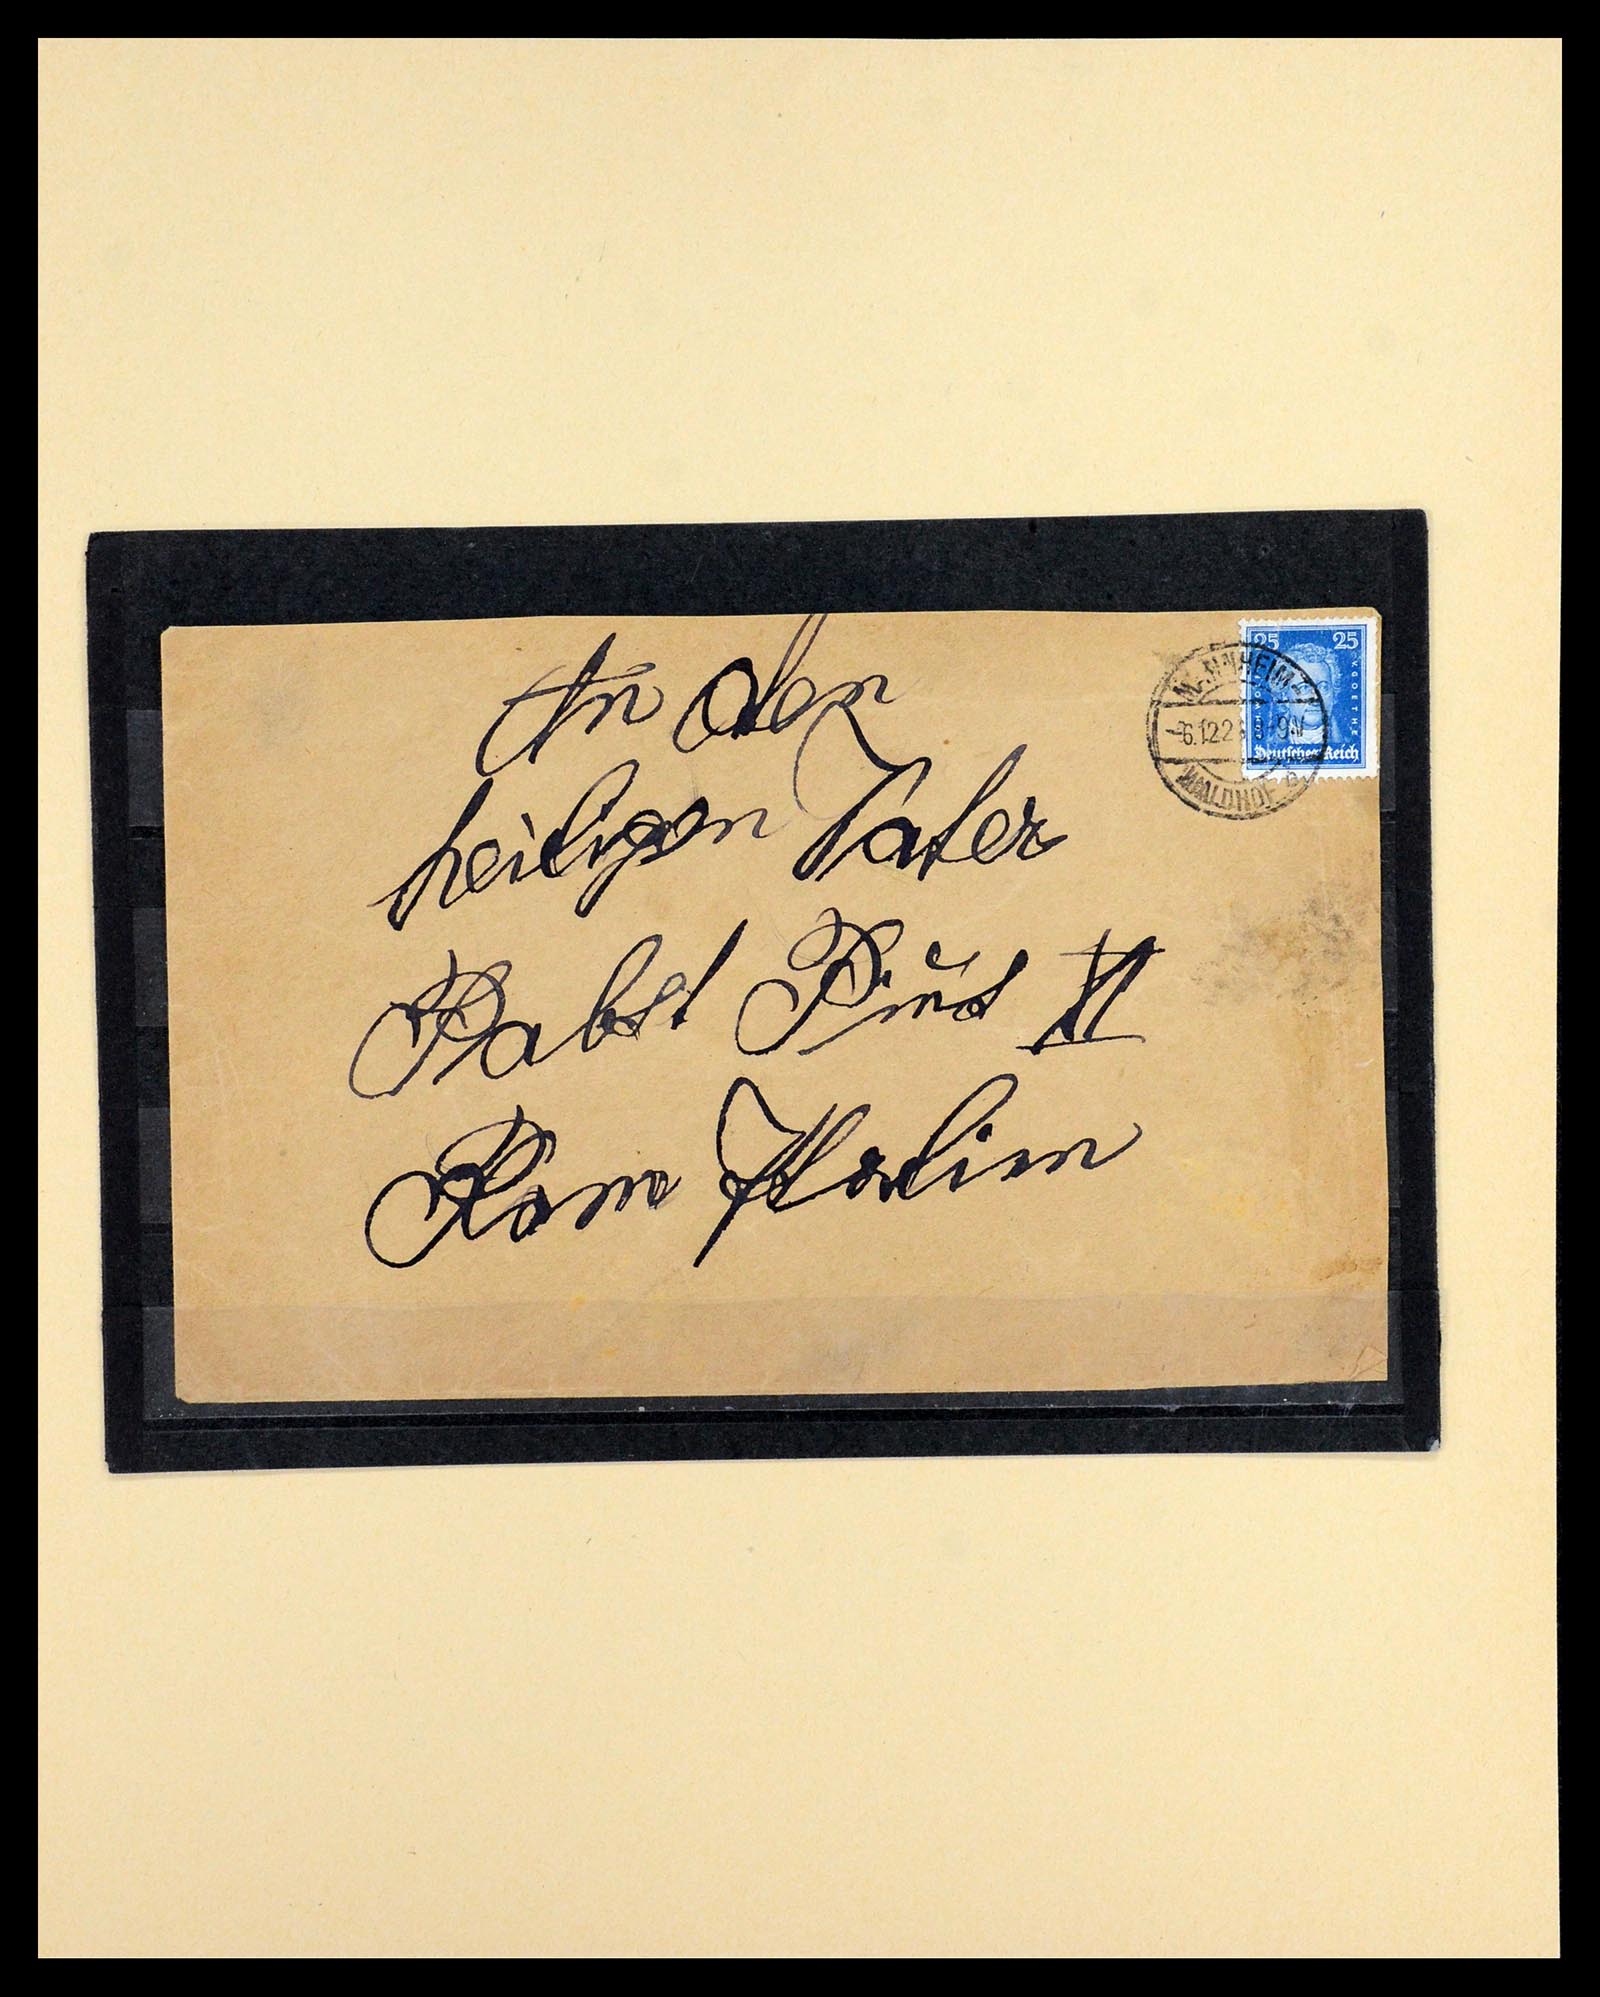 An den
heiligen Vater
Pabst Pius XI
Rom Italien
25 25
V. GOETHE
Deutsches Reich
MANNHEIM
-6.12.2 8-9N
WALDHOF